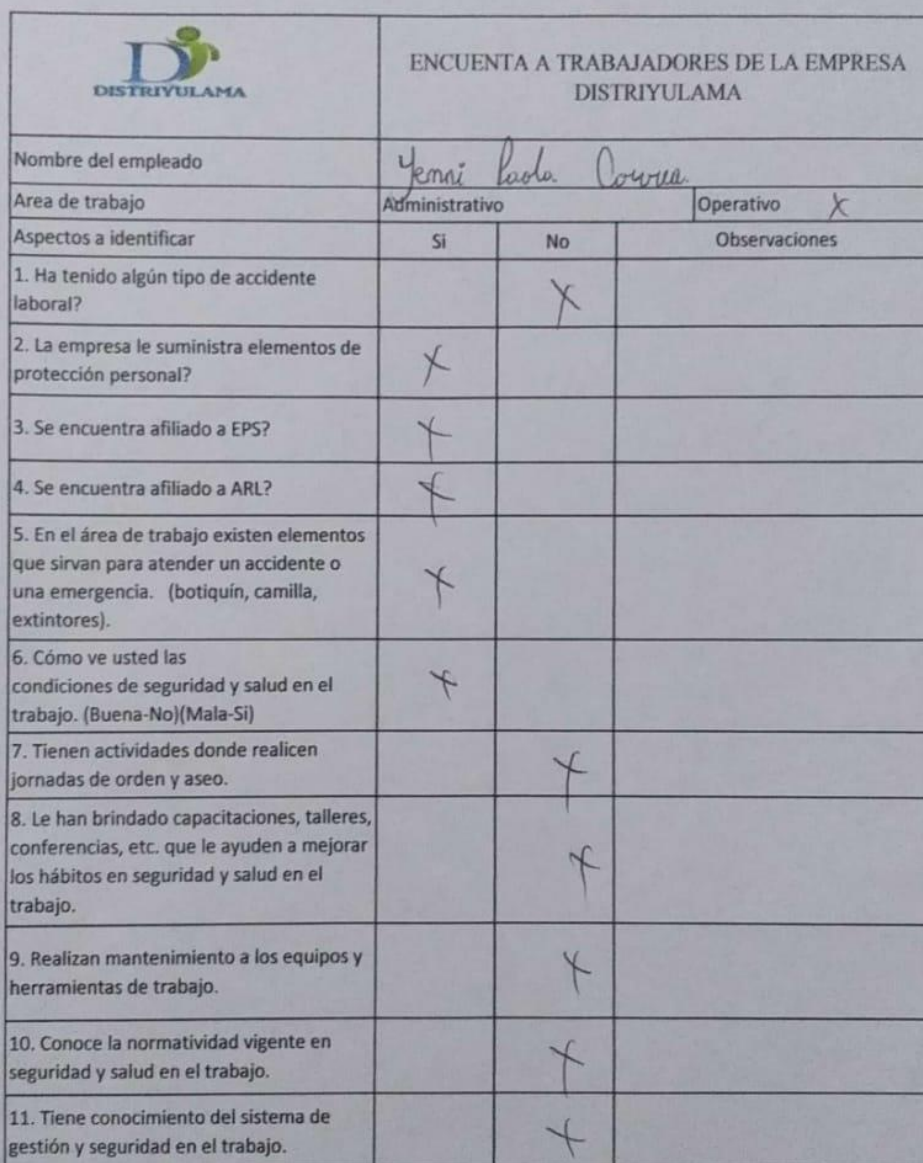 DISTRIYULAMA
ENCUENTA A TRABAJADORES DE LA EMPRESA
DISTRIYULAMA
Nombre del empleado Yenni Paola Correa.
Area de trabajo Administrativo Operativo X
Aspectos a identificar Si No Observaciones
1. Ha tenido algún tipo de accidente
laboral? X
2. La empresa le suministra elementos de
protección personal? X
3. Se encuentra afiliado a EPS? X
4. Se encuentra afiliado a ARL? X
5. En el área de trabajo existen elementos
que sirvan para atender un accidente o
una emergencia. (botiquín, camilla, X
extintores).
6. Cómo ve usted las
condiciones de seguridad y salud en el X
trabajo. (Buena-No)(Mala-Si)
7. Tienen actividades donde realicen
jornadas de orden y aseo. X
8. Le han brindado capacitaciones, talleres,
conferencias, etc. que le ayuden a mejorar
los hábitos en seguridad y salud en el X
trabajo.
9. Realizan mantenimiento a los equipos y
herramientas de trabajo. X
10. Conoce la normatividad vigente en
seguridad y salud en el trabajo. X
11. Tiene conocimiento del sistema de
gestión y seguridad en el trabajo. X